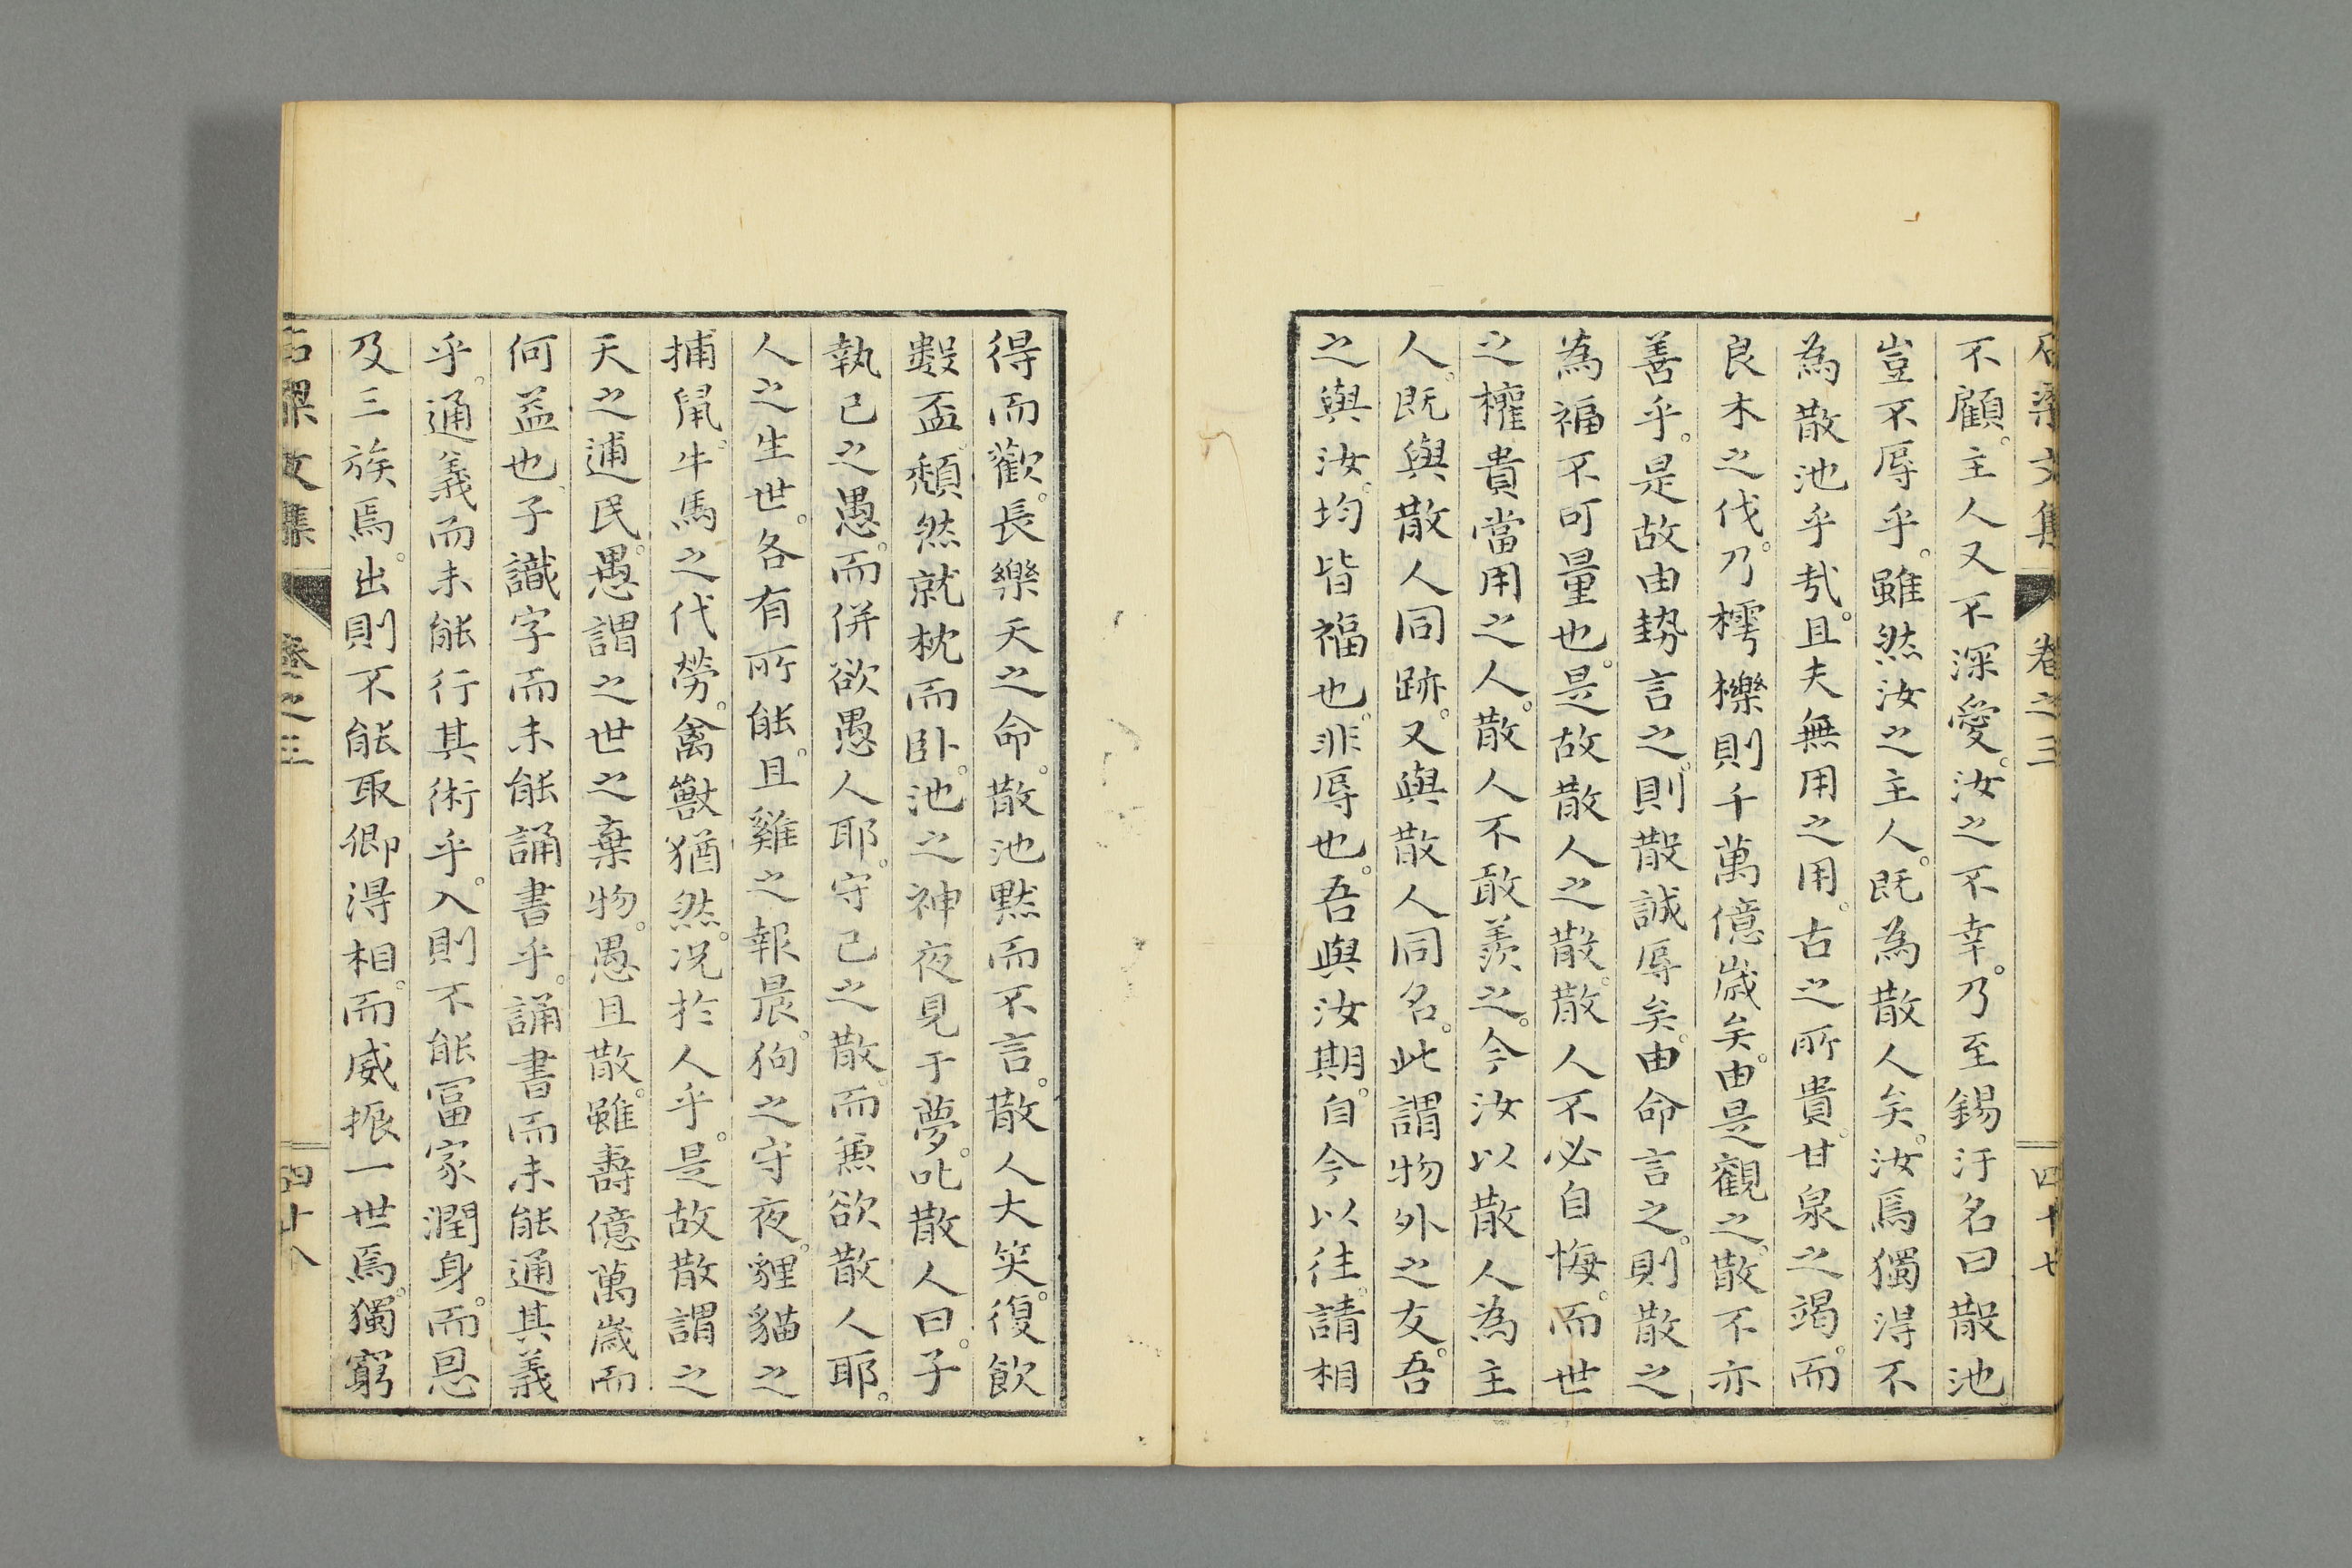 石梁文集 卷之三 四十七
不顧。主人又不深愛。汝之不幸。乃至錫汙名曰散池。
豈不辱乎。雖然汝之主人。既為散人矣。汝焉獨得不
為散池乎哉。且夫無用之用。古之所貴。甘泉之竭。而
良木之伐。乃樗櫟則千萬億歲矣。由是觀之。散不亦
善乎。是故由勢言之。則散誠辱矣。由命言之。則散之
為福不可量也。是故散人之散。散人不必自悔。而世
之權貴當用之人。散人不敢羨之。今汝以散人為主
人。既與散人同跡。又與散人同名。此謂物外之友。吾
之與汝。均皆福也。非辱也。吾與汝期。自今以往。請相
得而歡。長樂天之命。散池默而不言。散人大笑。復飲
數盃。頹然就枕而臥。池之神夜見于夢。叱散人曰。子
執己之愚。而併欲愚人耶。守己之散。而兼欲散人耶。
人之生世。各有所能。且雞之報晨。狗之守夜。貍貓之
捕鼠。牛馬之代勞。禽獸猶然。況於人乎。是故散謂之
天之逋民。愚謂之世之棄物。愚且散。雖壽億萬歲而
何益也。子識字而未能誦書乎。誦書而未能通其義
乎。通義而未能行其術乎。入則不能冨家潤身。而恩
及三族焉。出則不能取卿得相。而威振一世焉。獨窮
石梁文集 卷之三 四十八